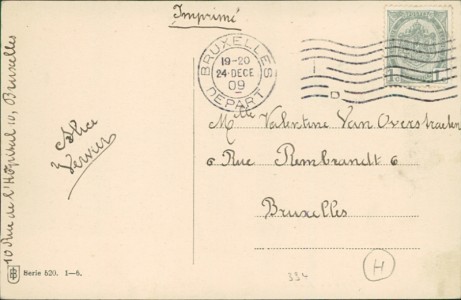 Imprimé
BRUXELLES
19-20
24·DECE
09
DEPART
1c 1c
Mlle Valentine Van Overstraeten
6 Rue Rembrandt 6
Bruxelles
Alice
Verrier
10 Rue de l'Hôpital 10, Bruxelles
Serie 520. 1-6.
334
H